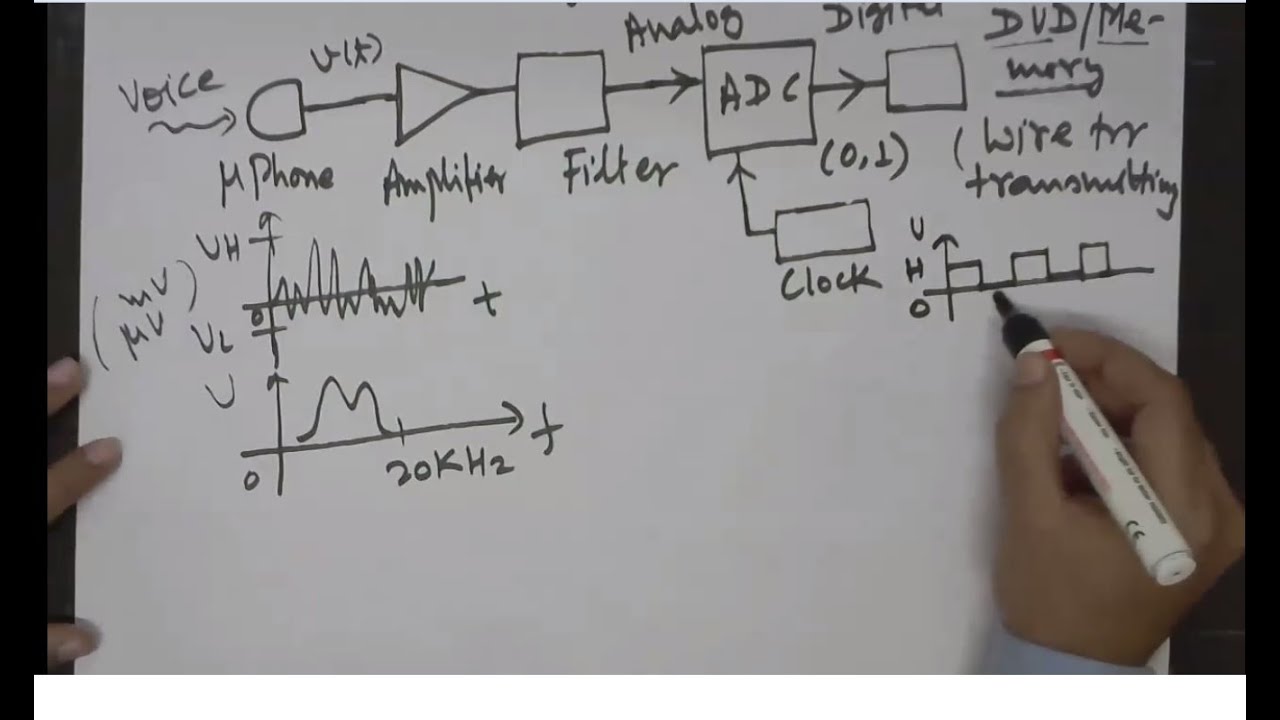 Analog
Digital
DVD/Me-
mory
(Wire for
transmitting
Voice
v(t)
ADC
(0,1)
μPhone
Amplifier
Filter
Clock
VH
(mV
μV)
0
VL
t
V
0
20KHz
f
V
H
0
CE